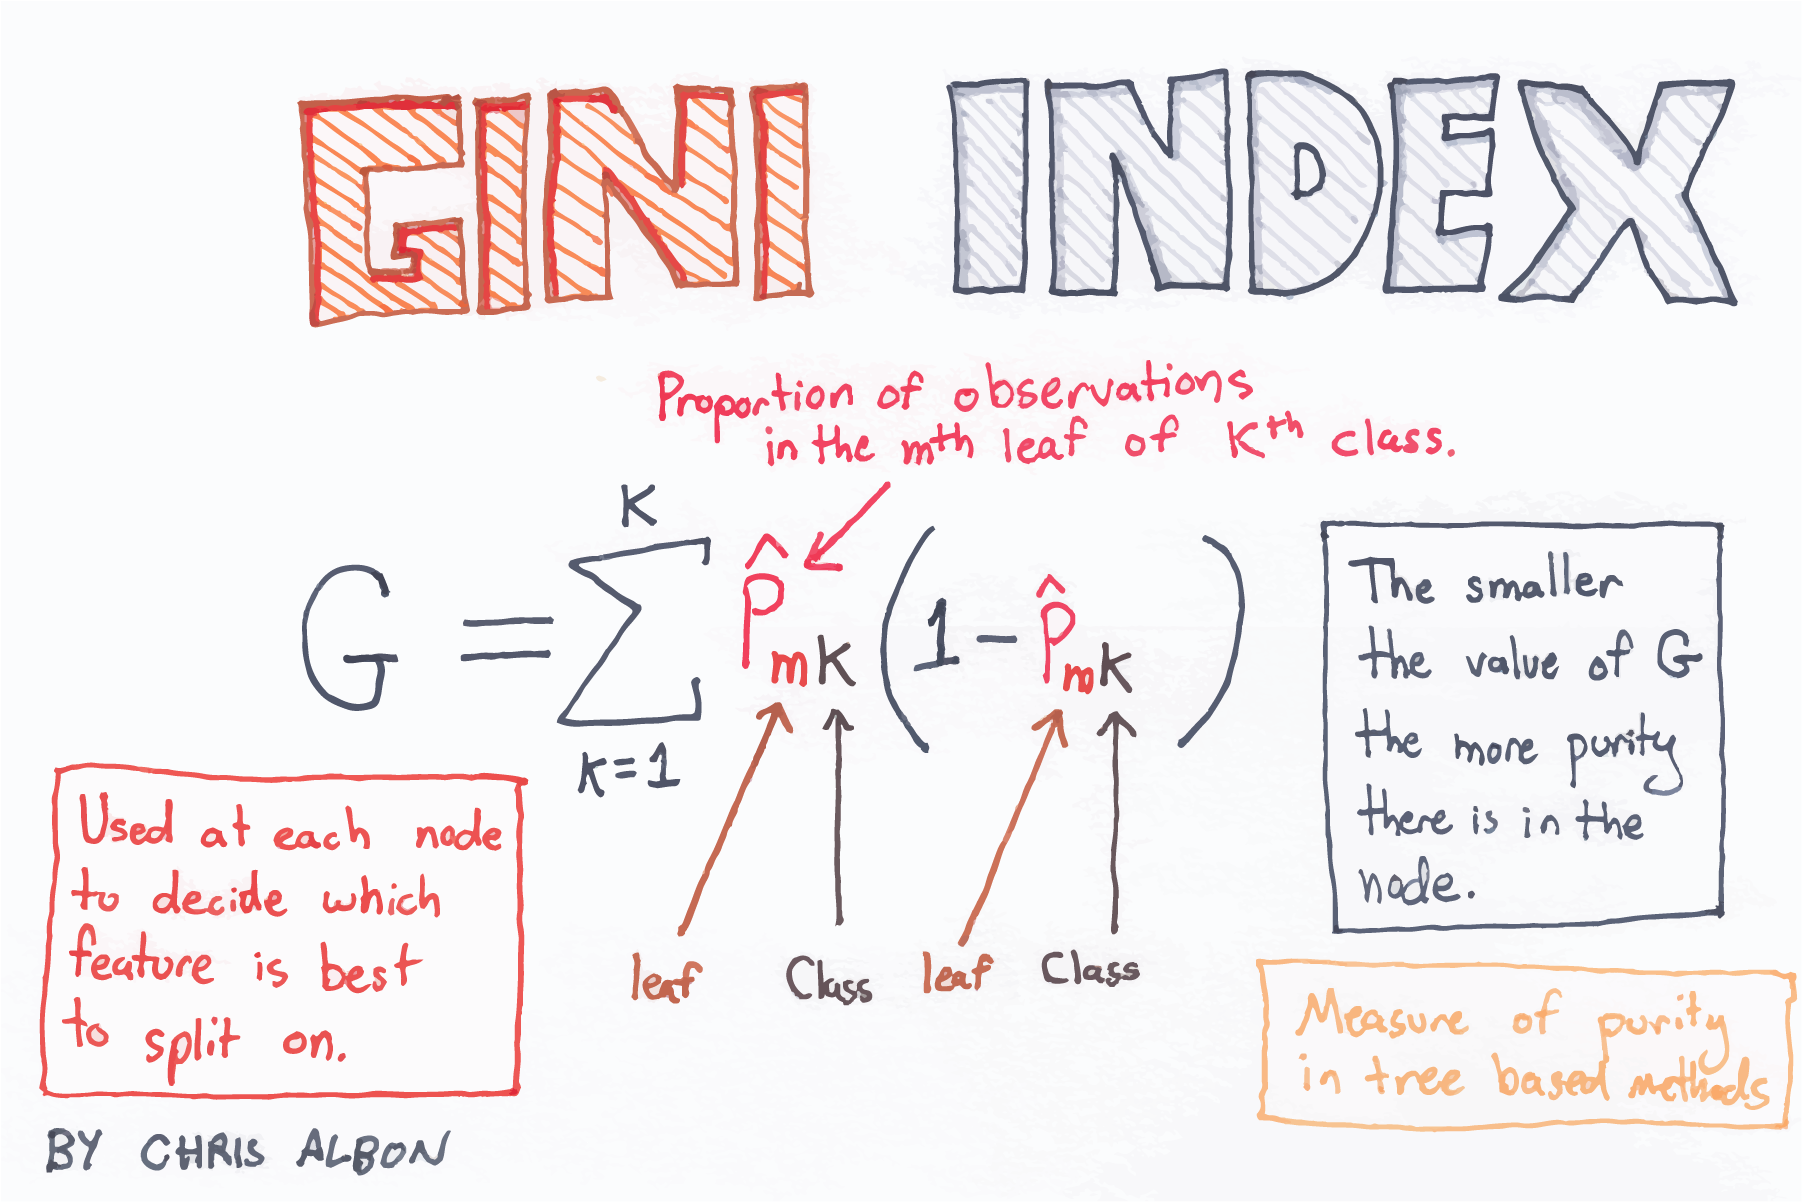 GINI INDEX
Proportion of observations
in the mth leaf of Kth class.
G = K Σ k=1 p̂mk (1 - p̂mk)
The smaller
the value of G
the more purity
there is in the
node.
Used at each node
to decide which
feature is best
to split on.
leaf Class leaf Class
Measure of purity
in tree based methods
BY CHRIS ALBON